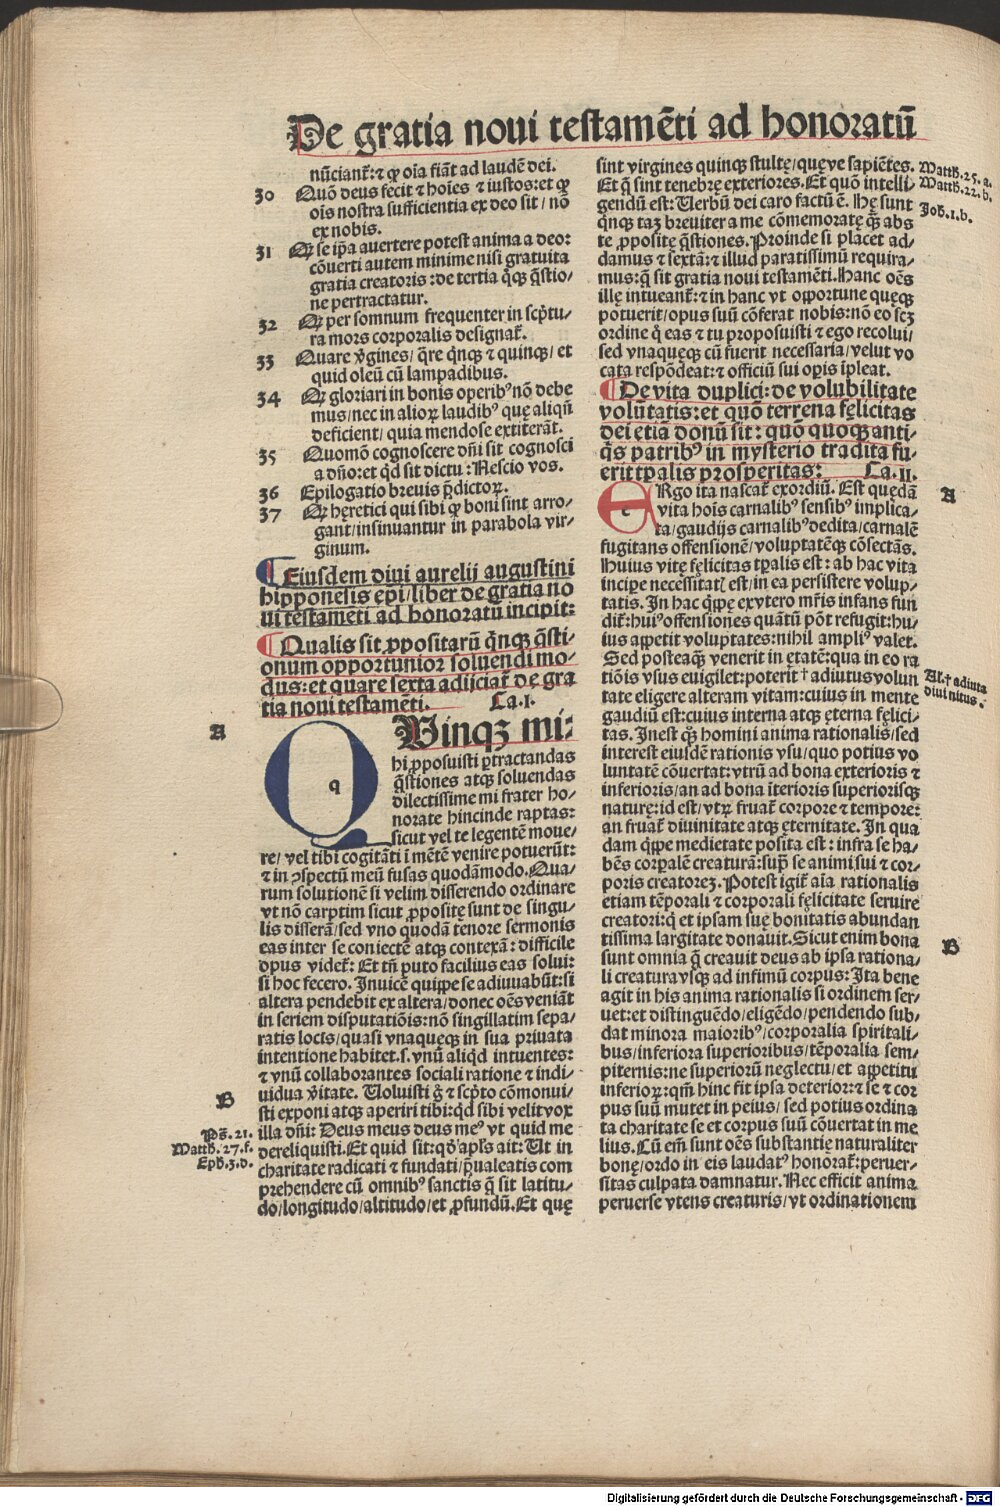 De gratia noui testamēti ad honoratū
nūciant᷑: ⁊ ꝙ oīa fiāt ad laudē dei.
30 Quō deus fecit ⁊ hoīes ⁊ iustos: et ꝙ
oīs nostra sufficientia ex deo sit / nō
ex nobis.
31 Ꝙ se ip̄a auertere potest anima a deo:
cōuerti autem minime nisi gratuita
gratia creatoris: de tertia q̄nqꝫ q̄stio/
ne pertractatur.
32 Ꝙ per somnum frequenter in scp̄tu/
ra mors corporalis designat᷑.
33 Quare v̄gines / q̄re q̄nqꝫ ⁊ quinqꝫ / et
quid oleū cū lampadibus.
34 Ꝙ gloriari in bonis operibꝰ nō debe
mus / nec in alioꝝ laudibꝰ quę aliqū
deficient / quia mendose extiterāt.
35 Quomō cognoscere dn̄i sit cognosci
a dn̄o: et qd̄ sit dictu: Nescio vos.
36 Epilogatio breuis p̄dictoꝝ.
37 Ꝙ hęretici qui sibi ꝙ boni sint arro/
gant / insinuantur in parabola vir/
ginum.
¶ Eiusdem diui aurelij augustini
hipponesis ep̄i / liber de gratia no
ui testamēti ad honoratū incipit:
¶ Qualis sit ꝓpositarū q̄nqꝫ q̄sti/
onum opportunior soluendi mo/
dus: et quare sexta adijciat᷑ de gra
tia noui testamēti. Ca.I.
A
q
QVinqꝫ mi:
hi ꝓposuisti ꝑtractandas
q̄stiones atqꝫ soluendas
dilectissime mi frater ho/
norate hincinde raptas:
sicut vel te legentē moue/
re / vel tibi cogitāti ī mētē venire potuerūt:
⁊ in ꝯspectū meū fusas quodāmodo. Qua/
rum solutionē si velim disserendo ordinare
vt nō carptim sicut ꝓpositę sunt de singu/
lis disserā / sed vno quodā tenore sermonis
eas inter se coniectē atqꝫ contexā: difficile
opus videt᷑: Et tn̄ puto facilius eas solui:
si hoc fecero. Inuicē quippe se adiuuabūt: si
altera pendebit ex altera / donec oēs veniāt
in seriem disputatiōis: nō singillatim sepa/
ratis locis / quasi vnaquęqꝫ in sua priuata
intentione habitet. s. vnū aliqd̄ intuentes:
⁊ vnū collaborantes sociali ratione ⁊ indi/
uidua v̄itate. Uoluisti g̊ ⁊ scp̄to cōmonui/
B
sti exponi atqꝫ aperiri tibi: qd̄ sibi velit vox
Ps̄.21.
Matth.27.f.
Eph.3.d.
illa dn̄i: Deus meus deus meꝰ vt quid me
dereliquisti. Et quid sit: qd̄ apl̄s ait: Ut in
charitate radicati ⁊ fundati / p̄ualeatis com
prehendere cū omnibꝰ sanctis q̄ sit latitu/
do / longitudo / altitudo / et ꝓfundū. Et quę
sint virgines quinqꝫ stultę / quęve sapiētes.
Matth.25.a.
Et q̄ sint tenebrę exteriores. Et quō intelli/
Matth.22.b.
gendū est: Uerbū dei caro factū ē. Hę sunt
Joh.1.b.
q̄nqꝫ taꝫ breuiter a me cōmemoratę qꝫ abs
te ꝓpositę q̄stiones. Proinde si placet ad/
damus ⁊ sextā: ⁊ illud paratissimū requira/
mus: q̄ sit gratia noui testamēti. Hanc oēs
illę intueant᷑: ⁊ in hanc vt opportune quęqꝫ
potuerit / opus suū cōferat nobis: nō eo scꝫ
ordine q̄ eas ⁊ tu proposuisti ⁊ ego recolui /
sed vnaquęqꝫ cū fuerit necessaria / velut vo
cata respōdeat: ⁊ officiū sui op̄is īpleat.
¶ De vita duplici: de volubilitate
volūtatis: et quō terrena fęlicitas
dei etiā donū sit: quō quoqꝫ anti/
q̄s patribꝰ in mysterio tradita fu/
erit tp̄alis prosperitas: Ca.II.
e
ERgo ita nascat᷑ exordiū. Est quędā
A
vita hoīs carnalibꝰ sensibꝰ implica/
ta / gaudijs carnalibꝰ dedita / carnalē
fugitans offensionē / voluptatēqꝫ cōsectās.
Huius vitę fęlicitas tp̄alis est: ab hac vita
incipe necessitatꝭ est / in ea persistere volup/
tatis. In hac q̄ppe ex vtero mr̄is infans fun
dit᷑: huiꝰ offensiones quātū pōt refugit: hu/
ius appetit voluptates: nihil ampliꝰ valet.
Sed posteaqꝫ venerit in ętatē: qua in eo ra
tiōis vsus euigilet: poterit † adiutus volun
Al. † adiuta
diuinitus.
tate eligere alteram vitam: cuius in mente
gaudiū est: cuius interna atqꝫ ęterna fęlici/
tas. Inest qꝫ homini anima rationalis / sed
interest eiusdē rationis vsu / quo potius vo
luntatē cōuertat: vtrū ad bona exterioris ⁊
inferioris / an ad bona īterioris superiorisqꝫ
naturę: id est / vtꝝ fruat᷑ corpore ⁊ tempore:
an fruat᷑ diuinitate atqꝫ ęternitate. In qua
dam q̄ppe medietate posita est: infra se ha/
bēs corpalē creaturā: supͣ se animi sui ⁊ cor/
poris creatorēꝫ. Potest igit᷑ aīa rationalis
etiam tēporali ⁊ corporali fęlicitate seruire
creatori: q̄ et ipsam suę bonitatis abundan
tissima largitate donauit. Sicut enim bona
B
sunt omnia q̄ creauit deus ab ipsa rationa/
li creatura vsqꝫ ad infimū corpus: Ita bene
agit in his anima rationalis si ordinem ser/
uet: et distinguēdo / eligēdo / pendendo sub/
dat minora maioribꝰ / corporalia spiritali/
bus / inferiora superioribus / tēporalia sem/
piternis: ne superiorū neglectu / et appetitu
inferioꝝ: qm̄ hinc fit ipsa deterior: ⁊ se ⁊ cor
pus suū mutet in peius / sed potius ordina
ta charitate se et corpus suū cōuertat in me
lius. Cū em̄ sunt oēs substantię naturaliter
bonę / ordo in eis laudatꝰ honorat᷑: peruer/
sitas culpata damnatur. Nec efficit anima
peruerse vtens creaturis / vt ordinationem
Digitalisierung gefördert durch die Deutsche Forschungsgemeinschaft - DFG